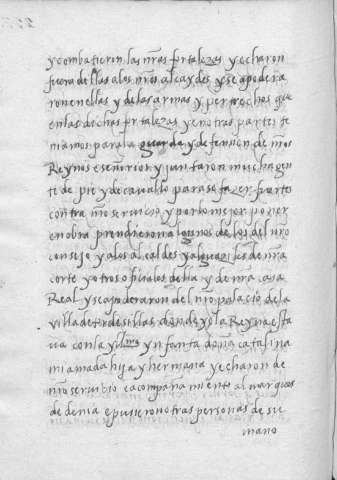 y combatieron las nr̃as fortalezas y echaron
fuera dellas a los nr̃os alcaydes y se apodera
ron en ellas y de las armas y pertrechos que
en las dichas fortalezas y en otras partes te
niamos para la guarda y defension de nr̃os
Reynos e señorios y juntaron mucha gen
te de pie y de cavallo para se fazer fuertes
contra nr̃o servicio y por lo mejor poner
en obra prendieron a algunos de los del nr̃o
consejo y a los alcaldes y alguaziles de nr̃a
corte y otros oficiales della y de nr̃a casa
Real y se apoderaron del nr̃o palacio de la
villa de tordesillas donde yo la Reyna esta
va con la yllma ynfanta doña catalina
mi amada hija y hermana y echaron de
nr̃o servicio e acompañamiento al marques
de denia e pusieron otras personas de su
mano